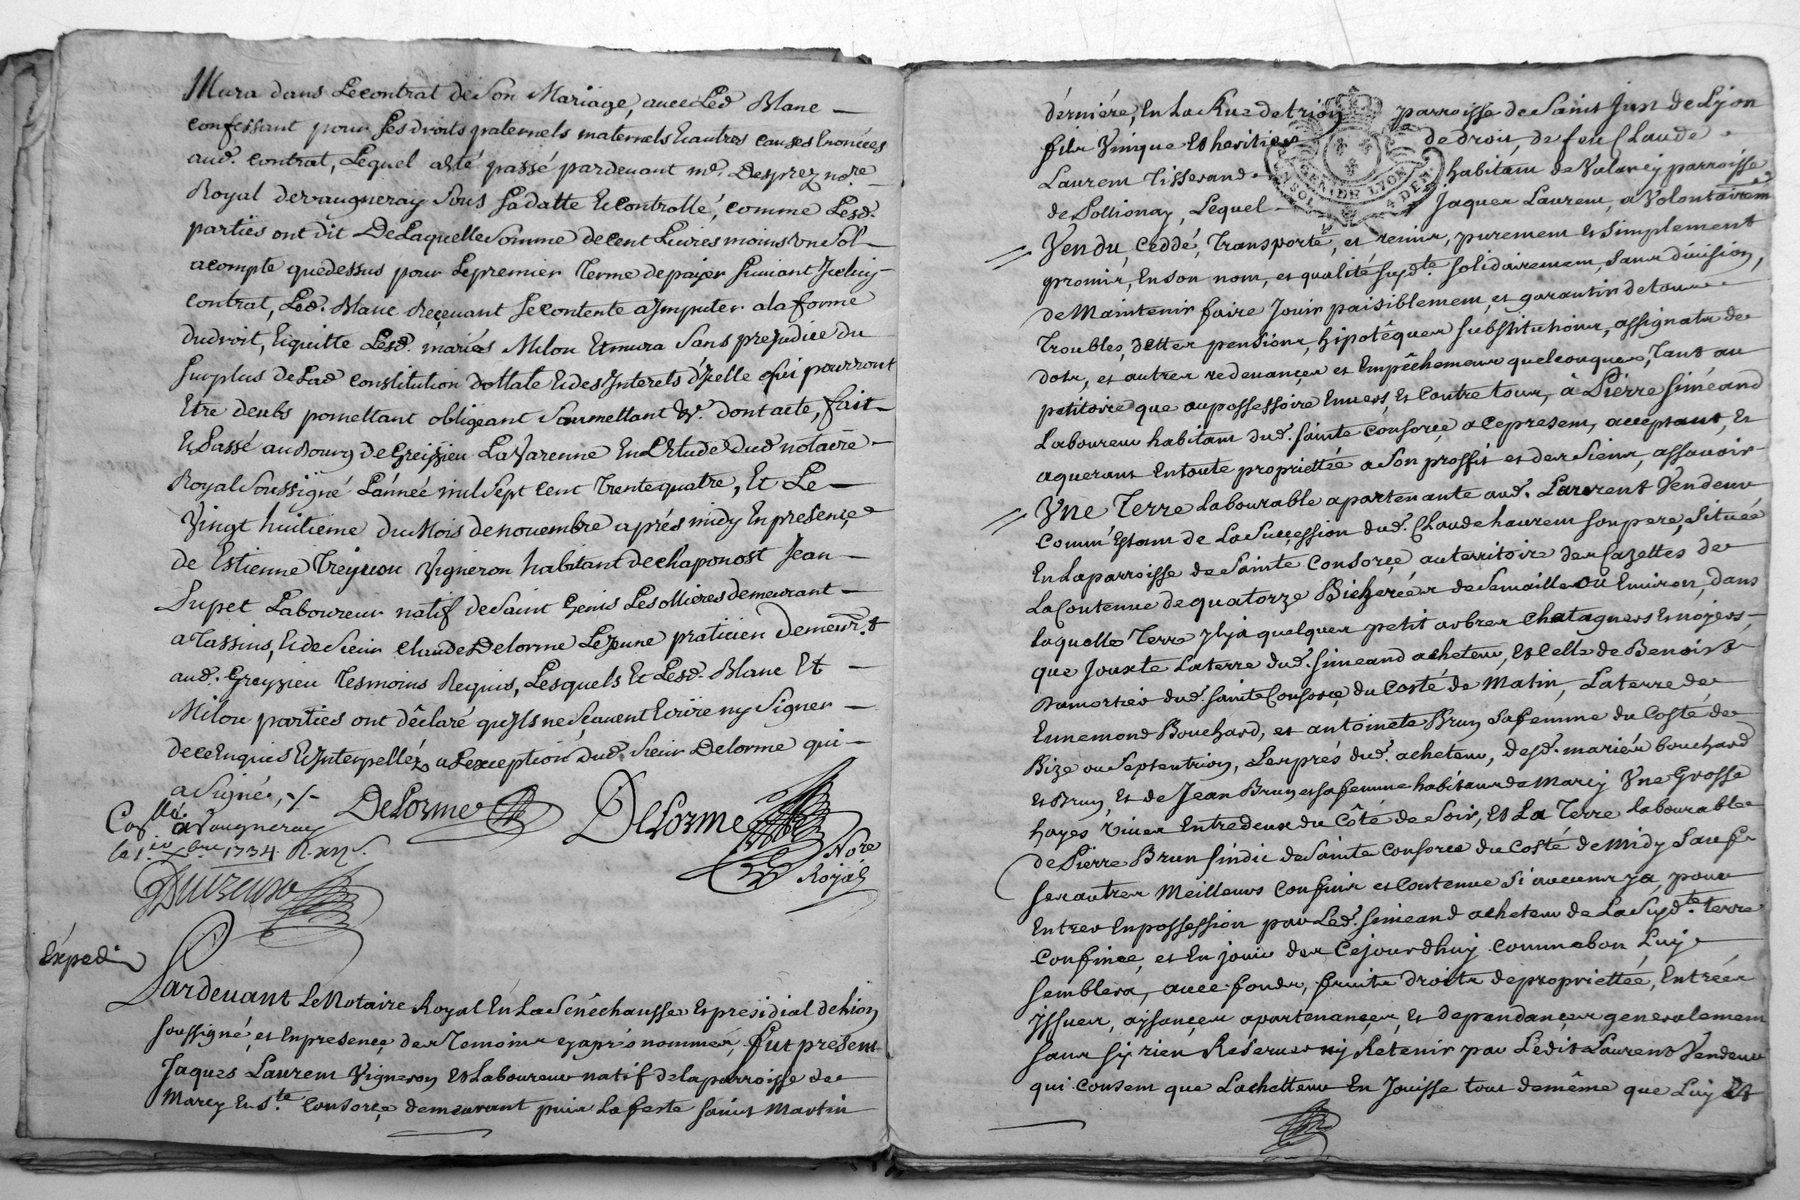 Mura dans Le contrat de Son Mariage, avec Led. Blanc
confessant pour ses droits paternels maternels Et autres causes Enoncées
aud. contrat, Lequel a été passé pardevant me. Desprez nore.
Royal de vaugneray Sous Sa datte Et controllé, comme Lesd.
parties ont dit De Laquelle Somme de cent Livres moins un Sol
a compte que dessus pour Le premier Terme de paÿer Suivant Jceluy
contrat, Led. Blanc Reçevant Se contente a Jmputer a la forme
du droit, Et quitte Lesd. mariés Milon Et mura Sans prejudice du
Surplus de Lad. constitution dottale Et des Jnterets d'Jcelle qui pourront
Etre deubs promettant obligeant Soumettant &c. dont acte, fait
Et Passé au Bourg de Greizieu La Varenne En L'Etude dud. notaire
Royal Soussigné L'année mil Sept cent Trente quatre, Et Le
Vingt huitieme du Mois de novembre aprés midy En presençe
de Estienne Treyvou Vigneron habitant de chaponost Jean
Supet Laboureur natif de Saint Genis Les ollieres demeurant
a Tassins, Et de Sieur Claude Delorme Le Jeune praticien demeurt.
aud. Greyzieu Tesmoins Requis, Lesquels Et Lesd. Blanc Et
Milon parties ont dêclaré qu'Jls ne Sçavent Ecrire ny Signer
de ce Enquis Et Jnterpellés a L'exception dud. Sieur Delorme qui
a Signé, -/-
DeLorme
DeLorme
Nore
Royal
Collé a Vaugneray
le 1er Xbre 1734. R.
Expedié
Pardevant Le Notaire Royal En La Senêchaussée Et présidial de Lion
soussigné, et En presençe des Temoins cy aprés nommés, fut présent
Jaques Laurent Vigneron Et Laboureur natif de la parroisse de
Marcy En Ste. Consorçe demeurant puis La feste saint Martin
dérniére, En La Rue de trion parroisse de Saint Just de Lyon
fils Vnique Et heritier de droit, de feu Claude
Laurent Tisserand habitant de Valancy parroisse
de Pollionay, Lequel Jaques Laurent, a Volontairemt
GENER. DE LYON
Vendu, Ceddé, Transporté, et remis, purement et simplement
promis, En son nom, et qualité susdte. solidairement, sans division,
de Maintenir faire Jouir paisiblement, et garantir de tous
Troubles, dettes pensions, hipotêques substitutions, assignats de
dots, et autres redevançes et Empêchemens quelconques, Tant au
petitoire que au possessoire Envers, Et Contre tous, â Piérre siméand
Laboureur habitant dud. sainte Consorçe a ce present, acceptant, Et
aquerant En toute propriettée a Son proffit et des Siens, assavoir
Vne Terre Labourable apartenante aud. Laurent Vendeur
Comm'Estant de La Suççession dud. Claude Laurent Son pere, Située
En La parroisse de Sainte Consorçe au territoire des Cazettes de
La Contenue de quatorze Bicherées de Semaille ou Environ, dans
laquelle Terre Jl y a quelques petit arbres Chatagners Et noyers,
que Jouxte La terre dud. siméand acheteur, Et Celle de Benoist
Dumortier dud. sainte Consorçe du Costé de Matin, La terre de
Ennemond Bouchard, et antoinete Brun Sa femme du Costé de
Bize ou Septentrion, Les prés dud. acheteur, desd. mariés bouchard
Et Brun, Et de Jean Brun et sa femme habitans de Marcy Vne Grosse
hayes Vive Entredeux du Côté de Soir, Et La Terre labourable
de Pierre Brun sindic de Sainte Consorce du Costé de Midy Sauf
ses autres Meilleurs Confins et Contenue Si aucuns y a, pour
Entrer En possession par Led. simeand acheteur de La susdte. terre
Confinee, et En jouir des Cejourdhuy comme bon Luy
semblera, avec fonds, fruits droits de propriettée, Entrées
Jssues, aysançes apartenançes, Et dependançes generalement
sans s'y rien Reserver ny Retenir par Ledit Laurent Vendeur
qui consent que Lachetteur En Jouisse tout de même que Luy Et